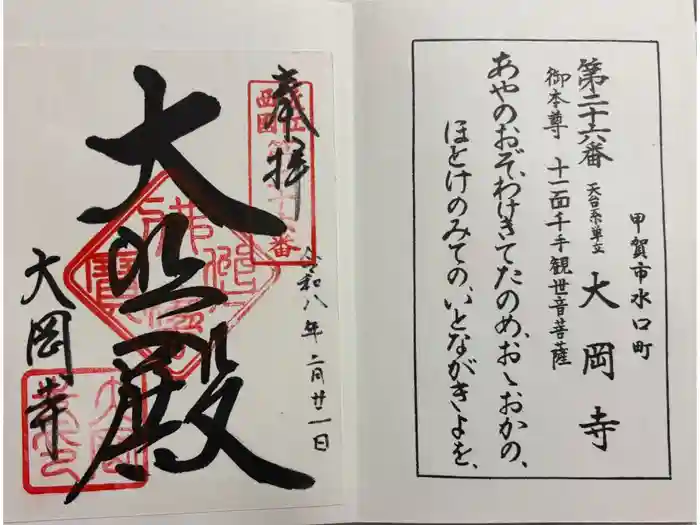 甲賀市水口町
第二十六番 天台系単立 大岡寺
御本尊 十一面千手観世音菩薩
あやのおぞ、わけきてたのめ、おゝおかの、
ほとけのみての、いとながきよを、
令和八年二月廿一日
奉拝
大悲殿
大岡寺